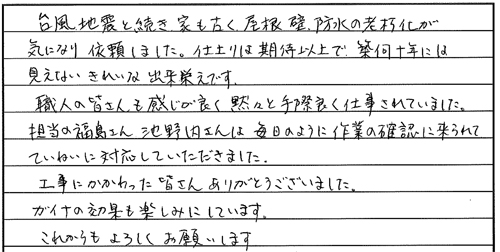 台風、地震と続き、家も古く、屋根、壁、防水の老朽化が
気になり依頼しました。仕上りは期待以上で、築何十年には
見えないきれいな出来栄えです。
職人の皆さんも感じが良く黙々と手際良く仕事されていました。
担当の福島さん、池野内さんは毎日のように作業の確認に来られて
ていねいに対応していただきました。
工事にかかわった皆さんありがとうございました。
ガイナの効果も楽しみにしています。
これからもよろしくお願いします